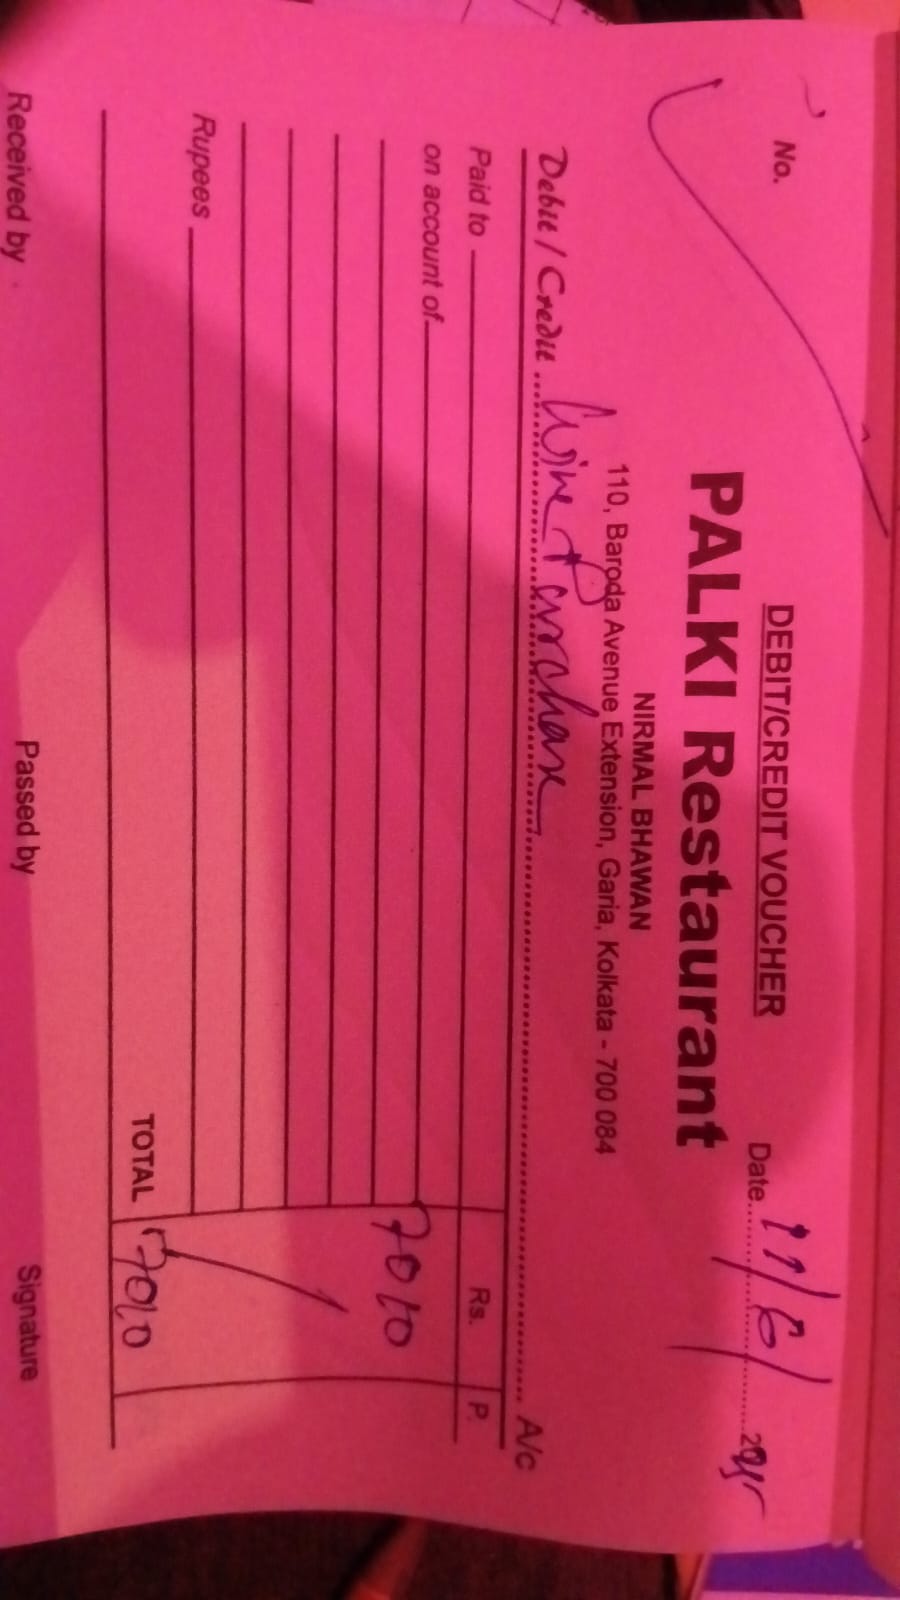 DEBIT/CREDIT VOUCHER
No.
Date 11/6/ 2025
PALKI Restaurant
NIRMAL BHAWAN
110, Baroda Avenue Extension, Garia, Kolkata - 700 084
Debit / Credit Wine A/c
Paid to Rs. P.
on account of
7010
Rupees
TOTAL 7010
Received by Passed by Signature